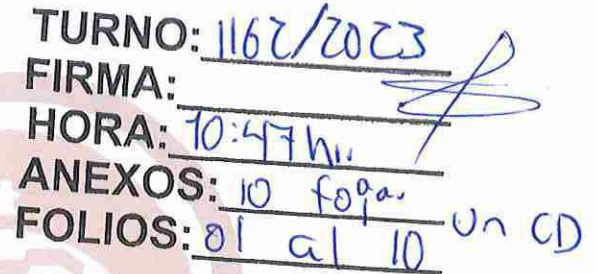 TURNO: 1162/2023
FIRMA:
HORA: 10:47 hr.
ANEXOS: 10 fojas. un CD
FOLIOS: 01 al 10